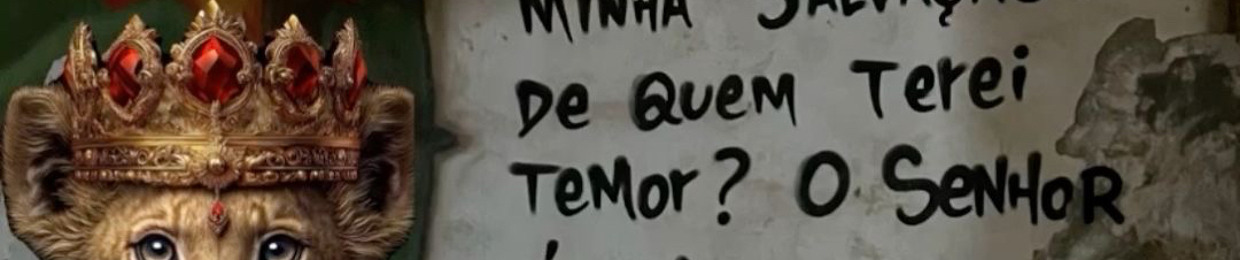 MINHA SALVAÇÃO
De QUEM Terei
TeMor? O SeNHoR
É